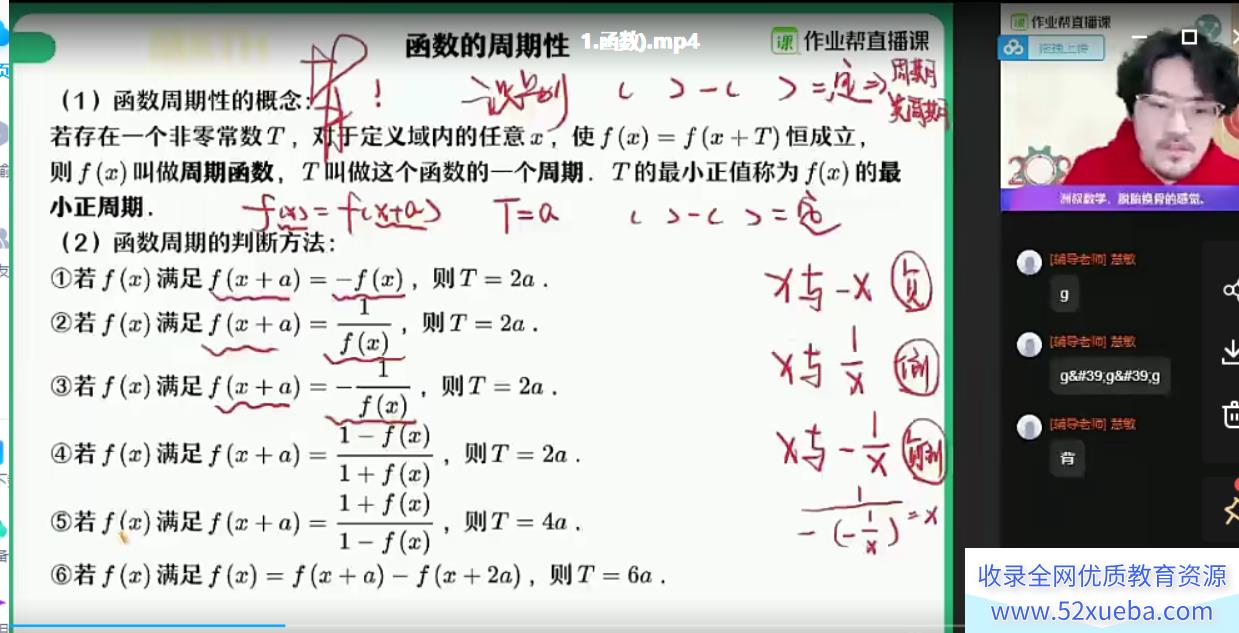 函数的周期性
1.函数).mp4
课 作业帮直播课
(1) 函数周期性的概念:
! 识别 ( ) - ( ) = 定 ⇒ 周期
类周期
若存在一个非零常数 T , 对于定义域内的任意 x , 使 f(x) = f(x + T) 恒成立,
则 f(x) 叫做周期函数, T 叫做这个函数的一个周期. T 的最小正值称为 f(x) 的最
小正周期.
f(x) = f(x+a) T=a ( ) - ( ) = 定
(2) 函数周期的判断方法:
①若 f(x) 满足 f(x + a) = -f(x) , 则 T = 2a .
x与-x 负
②若 f(x) 满足 f(x + a) = 1/f(x) , 则 T = 2a .
x与 1/x 倒
③若 f(x) 满足 f(x + a) = -1/f(x) , 则 T = 2a .
x与 -1/x 负倒
④若 f(x) 满足 f(x + a) = (1 - f(x))/(1 + f(x)) , 则 T = 2a .
1/(-(-1/x)) = x
⑤若 f(x) 满足 f(x + a) = (1 + f(x))/(1 - f(x)) , 则 T = 4a .
⑥若 f(x) 满足 f(x) = f(x + a) - f(x + 2a) , 则 T = 6a .
课 作业帮直播课
拖拽上传
洲叔数学,脱胎换骨的感觉.
[辅导老师] 慧敏
g
[辅导老师] 慧敏
g&#39;g&#39;g
[辅导老师] 慧敏
背
收录全网优质教育资源
www.52xueba.com